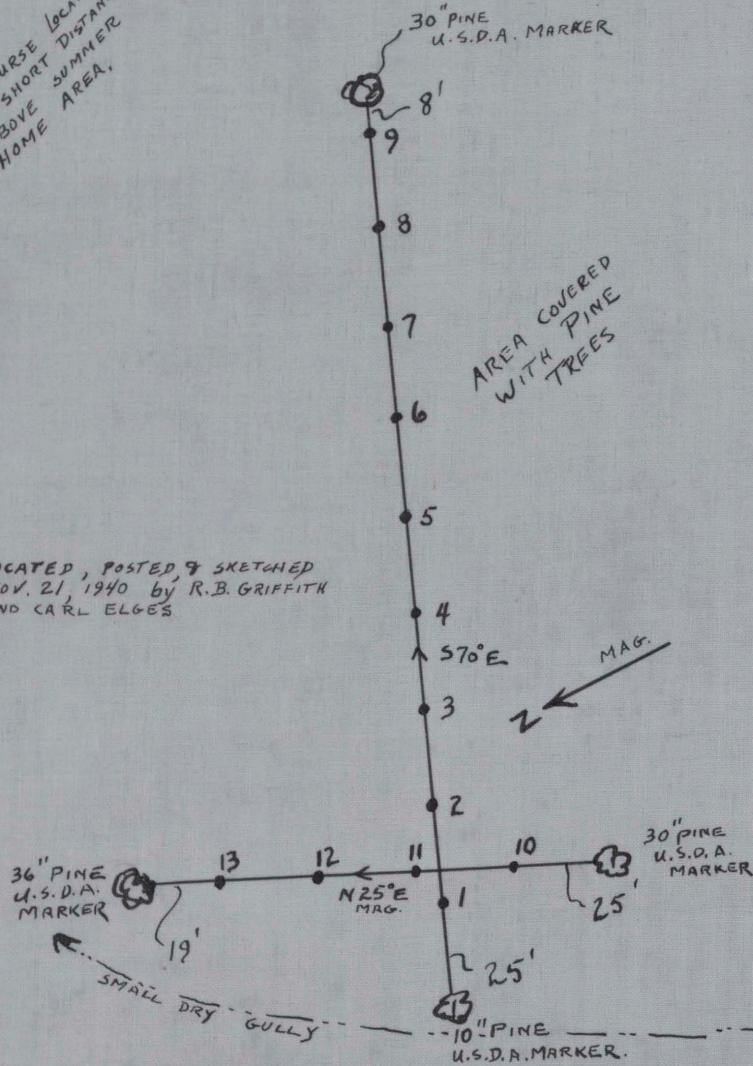 SHORT
ABOVE SUMMER
HOME AREA.
30" PINE
U.S.D.A. MARKER
8'
9
8
7
6
5
4
S70°E
3
2
1
AREA COVERED
WITH PINE
TREES
POSTED & SKETCHED
21, 1940 by R.B. GRIFFITH
CARL ELGES
MAG.
N
36" PINE
U.S.D.A.
MARKER
13
12
11
10
N25°E
MAG.
19'
30" PINE
U.S.D.A.
MARKER
25'
25'
SMALL DRY GULLY
10" PINE
U.S.D.A. MARKER.